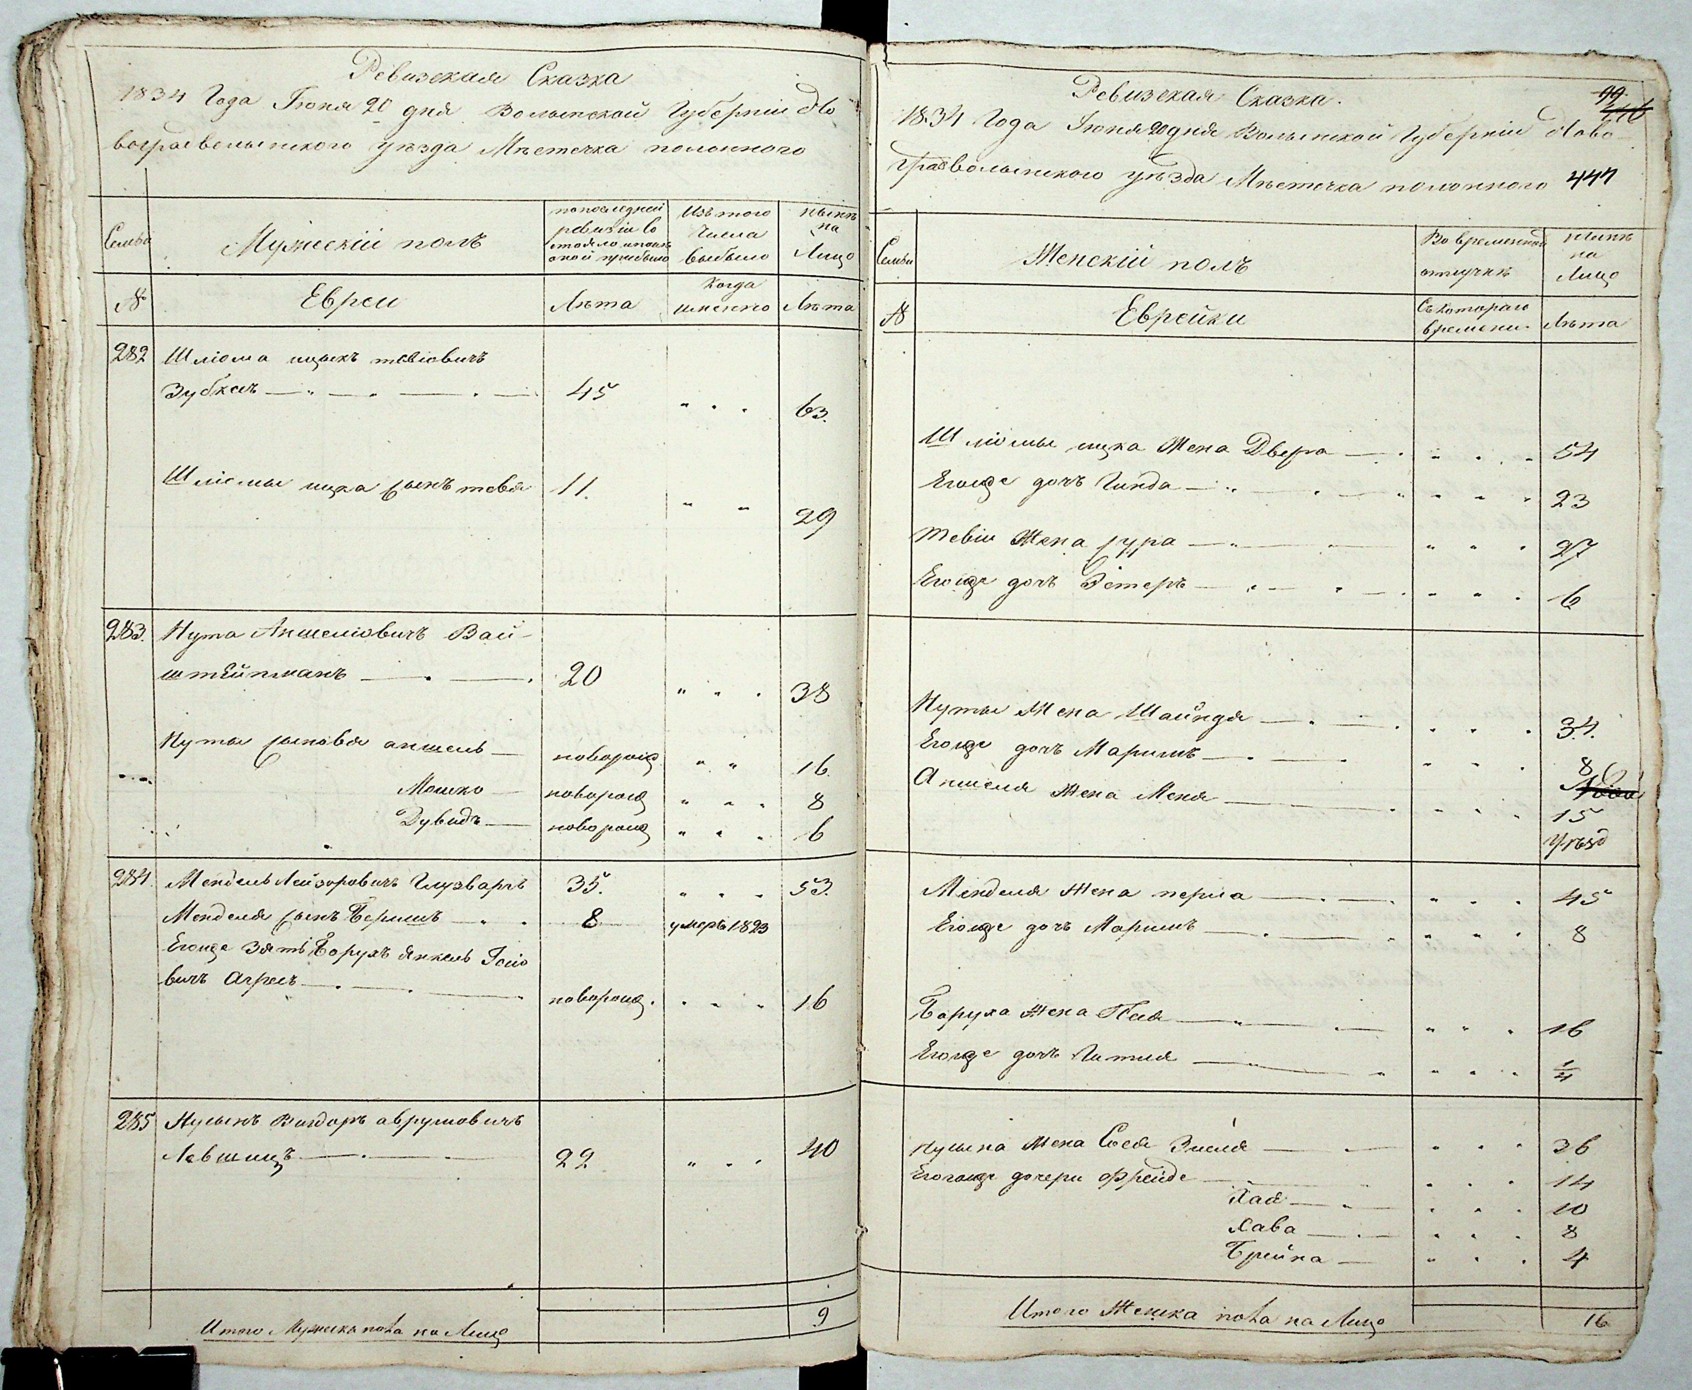 Ревизская Сказка
1834 Года Іюня 20 дня Волынской Губерніи Но
воградволынского уѣзда Мѣстечка полонного
Семьи
Мужескій полъ
по последней
ревизіи со
стояло и после
оной прибыло
Изъ того
числа
выбыло
нынѣ
на
Лицо
№
Евреи
Лѣта
Когда
именно
Лѣта
282
Шліома ицыкъ тевіовичъ
Зубкъ
45
63.
Шліомы ицка сынъ тевя
11.
29
283.
Нута Аншеліовичъ Вай-
штейнманъ
20
38
Нуты сыновя аншель
новорожд
16.
Мошко
новорожд
8
Дувидъ
новорожд
6
284.
Мендель Лейзоровичъ
35.
53.
Менделя сынъ Беришъ
8
умеръ 1823
Егоже зять Борухъ Янкель Іосіо
вичъ Агресъ
новорожд.
16
285
Нусынъ Вигдоръ аврумовичъ
Лявшицъ
22
40
Итого Мужеска пола на Лицо
9
Ревизская Сказка.
99.
446
1834 Года Іюня 20 дня Волынской Губерніи Ново
градволынского уѣзда Мѣстечка полонного
447
Семьи
Женскій полъ
Во временной
отлучкѣ
нынѣ
на
Лицо
№
Еврейки
Съ котораго
времени
Лѣта
Шліомы ицка Жена Двера
54
Егоже дочь Гинда
23
Тевіи Жена сура
27
Егоже дочь Эстеръ
6
Нуты Жена Шайндя
34.
Егоже дочь Маримъ
8
Аншеля Жена Меня
15
Менделя Жена перла
45
Егоже дочь Маримъ
8
Боруха Жена Пая
16
Егоже дочь Гитля
1/4
Нусына Жена Сося Зисля
36
Егоже дочери Фрейде
14
Хая
10
Хава
8
Брейна
4
Итого Женска пола на Лицо
16